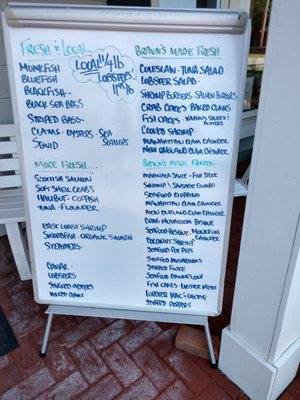 Fresh & Local
Monkfish
Bluefish
Blackfish
Black Sea Bass
Striped Bass
Clams · Oysters · Sea Scallops
Squid
Local 1 1/4 lb
Lobsters
More Fresh...
Scottish Salmon
Soft Shell Crabs
Halibut · Codfish
Tuna · Flounder
East Coast Shrimp
Swordfish · Organic Salmon
Steamers
Caviar
Lobsters
Shucked Oysters
Brown's Made Fresh
Coleslaw · Tuna Salad
Lobster Salad
Shrimp Burgers · Salmon Burgers
Crab Cakes · Baked Clams
Fish Cakes
Cooked Shrimp
Manhattan Clam Chowder
New England Clam Chowder
Brown's Made Frozen
Marinara Sauce · Fish Stock
Shrimp & Sausage Gumbo
Seafood Cioppino
Manhattan Clam Chowder
New England Clam Chowder
Crab Mushroom Bisque
Seafood Bisque · Monkfish Chowder
Coconut Shrimp
Seafood Pot Pies
Stuffed Mushrooms
Stuffed
Seafood
Fish Cakes · Lobster Meat
Lobster Mac & Cheese
Stuffed Peppers